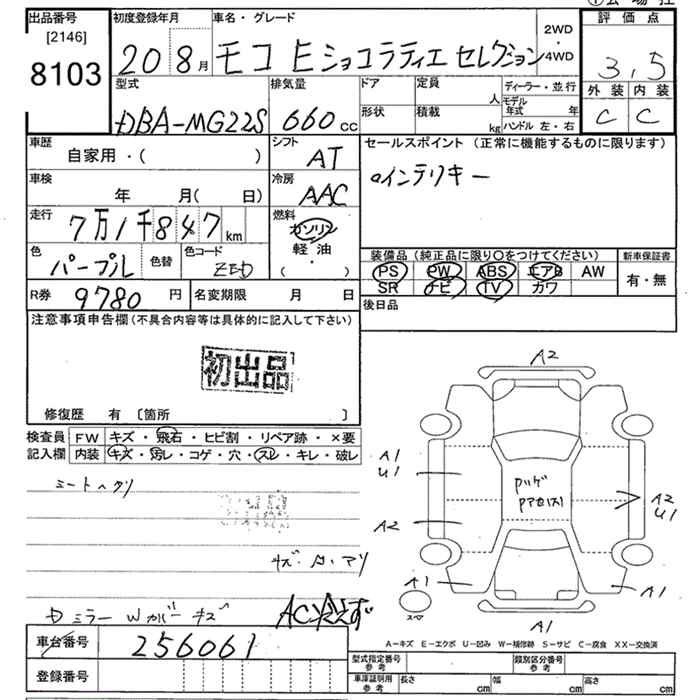 出品番号
[2146]
8103
初度登録年月
20 8月
車名・グレード
モコ E ショコラティエ セレクション
2WD
・
4WD
評価点
3,5
外装 内装
C C
型式
DBA-MG22S
排気量
660 cc
ドア
形状
定員 人
積載 kg
ディーラー・並行
モデル年式 年
ハンドル 左・右
車歴
自家用・( )
シフト
AT
車検
年 月( 日)
冷房
AAC
走行
7万1千847 km
燃料
ガソリン
軽油
( ・ )
色
パープル
色替
色コード
R券
9780 円
名変期限 月 日
セールスポイント(正常に機能するものに限ります)
○インテリキー
装備品(純正品に限り○をつけてください)
PS PW ABS エアB AW
SR ナビ TV カワ
新車保証書
有・無
後日品
注意事項申告欄(不具合内容等は具体的に記入して下さい)
初出品
修復歴 有 〔箇所 〕
検査員記入欄
FW キズ・飛石・ヒビ割・リペア跡・×要
内装 キズ・汚レ・コゲ・穴・スレ・キレ・破レ
A2
A1
U1
A2
A2
U1
A1
A1
A1
車台番号
256061
登録番号
A-キズ E-エクボ U-凹み W-補修跡 S-サビ C-腐食 XX-交換済
型式指定番号 参考
類別区分番号 参考
車庫証明用 参考
長さ cm 幅 cm 高さ cm